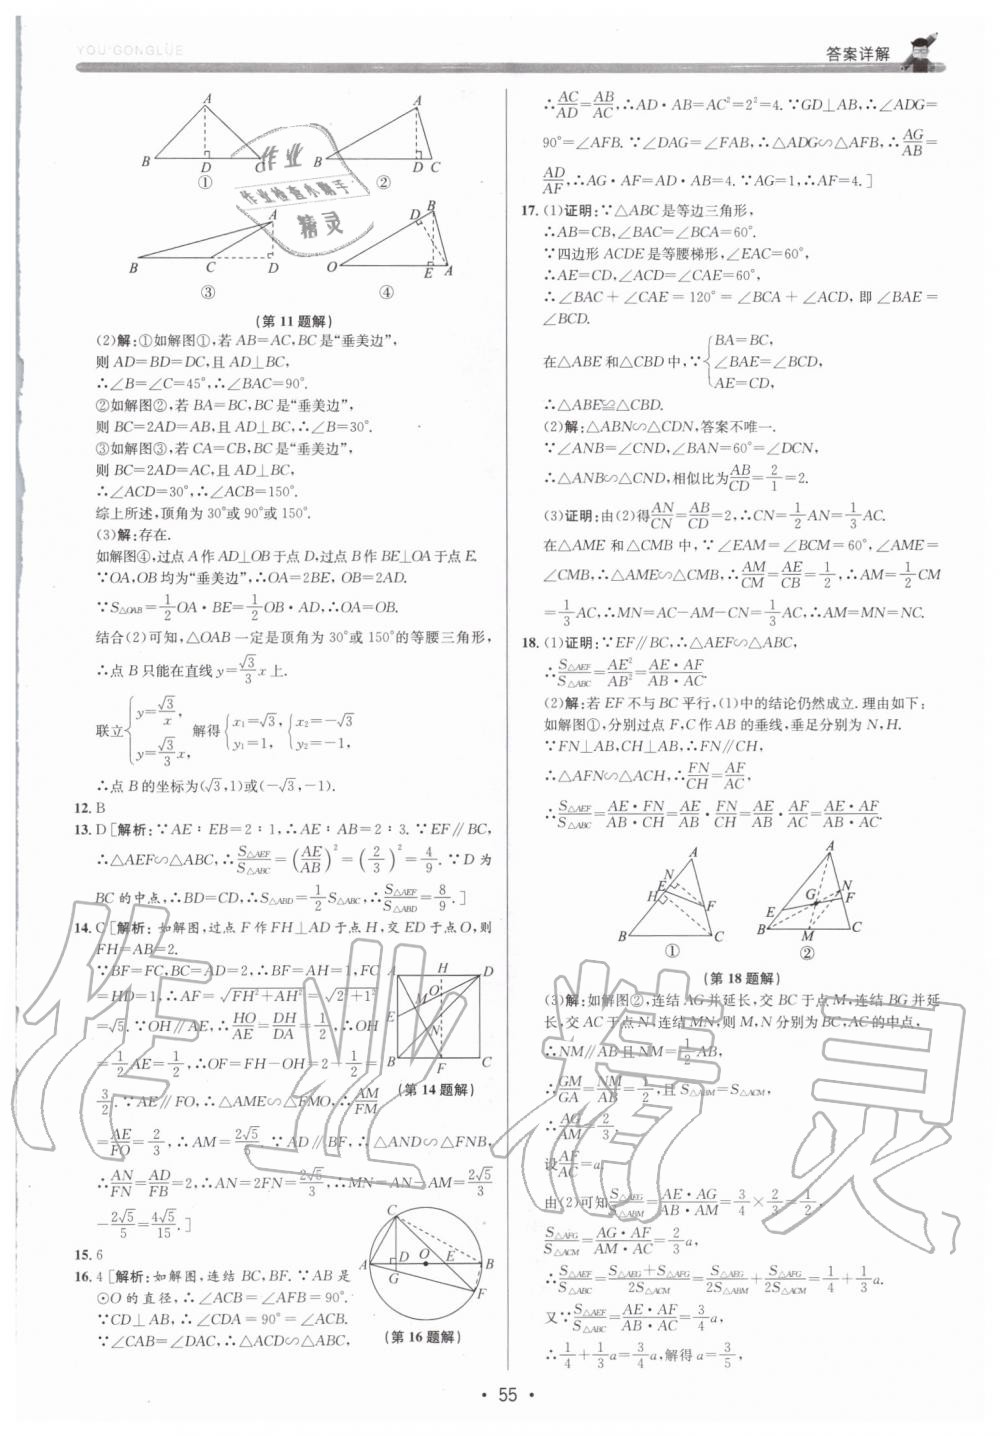 YOU'GONGLÜE
答案详解
A
B D C
①
A
B D C
②
A
B C D
③
B
D
O E A
④
(第11题解)
(2)解:①如解图①,若 AB=AC,BC是“垂美边”,
则 AD=BD=DC,且 AD⊥BC,
∴∠B=∠C=45°,∴∠BAC=90°.
②如解图②,若 BA=BC,BC是“垂美边”,
则 BC=2AD=AB,且 AD⊥BC,∴∠B=30°.
③如解图③,若 CA=CB,BC是“垂美边”,
则 BC=2AD=AC,且 AD⊥BC,
∴∠ACD=30°,∴∠ACB=150°.
综上所述,顶角为 30°或 90°或 150°.
(3)解:存在.
如解图④,过点 A 作 AD⊥OB 于点 D,过点 B 作 BE⊥OA 于点 E.
∵OA,OB 均为“垂美边”,∴OA=2BE, OB=2AD.
∵S△OAB=1/2 OA·BE=1/2 OB·AD,∴OA=OB.
结合(2)可知,△OAB 一定是顶角为 30°或 150°的等腰三角形,
∴点 B 只能在直线 y=√3/3 x 上.
联立{y=√3/x, y=√3/3 x, 解得{x₁=√3, y₁=1, {x₂=-√3 y₂=-1,
∴点 B 的坐标为(√3,1)或(-√3,-1).
12. B
13. D [解析:∵AE∶EB=2∶1,∴AE∶AB=2∶3.∵EF∥BC,
∴△AEF∽△ABC,∴S△AEF/S△ABC=(AE/AB)²=(2/3)²=4/9.∵D 为
BC 的中点,∴BD=CD,∴S△ABD=1/2 S△ABC,∴S△AEF/S△ABD=8/9.]
14. C [解析:如解图,过点 F 作 FH⊥AD 于点 H,交 ED 于点 O,则
FH=AB=2.
∵BF=FC,BC=AD=2,∴BF=AH=1,FC
=HD=1,∴AF=√(FH²+AH²)=√(2²+1²)
=√5.∵OH∥AE,∴HO/AE=DH/DA=1/2,∴OH
=1/2 AE=1/2,∴OF=FH-OH=2-1/2=
3/2.∵AE∥FO,∴△AME∽△FMO,∴AM/FM
=AE/FO=2/3,∴AM=2√5/5.∵AD∥BF,∴△AND∽△FNB,
∴AN/FN=AD/FB=2,∴AN=2FN=2√5/3,∴MN=AN-AM=2√5/3
-2√5/5=4√5/15.]
A H D
M O
E N
B F C
(第14题解)
15. 6
16. 4 [解析:如解图,连结 BC,BF.∵AB 是
⊙O 的直径,∴∠ACB=∠AFB=90°.
∵CD⊥AB,∴∠CDA=90°=∠ACB.
∵∠CAB=∠DAC,∴△ACD∽△ABC,
C
A D O E B
G
F
(第16题解)
∴AC/AD=AB/AC,∴AD·AB=AC²=2²=4.∵GD⊥AB,∴∠ADG=
90°=∠AFB.∵∠DAG=∠FAB,∴△ADG∽△AFB,∴AG/AB=
AD/AF,∴AG·AF=AD·AB=4.∵AG=1,∴AF=4.]
17. (1)证明:∵△ABC 是等边三角形,
∴AB=CB,∠BAC=∠BCA=60°.
∵四边形 ACDE 是等腰梯形,∠EAC=60°,
∴AE=CD,∠ACD=∠CAE=60°,
∴∠BAC+∠CAE=120°=∠BCA+∠ACD,即∠BAE=
∠BCD.
在△ABE 和△CBD 中,∵{BA=BC, ∠BAE=∠BCD, AE=CD,
∴△ABE≌△CBD.
(2)解:△ABN∽△CDN,答案不唯一.
∵∠ANB=∠CND,∠BAN=60°=∠DCN,
∴△ANB∽△CND,相似比为AB/CD=2/1=2.
(3)证明:由(2)得AN/CN=AB/CD=2,∴CN=1/2 AN=1/3 AC.
在△AME 和△CMB 中,∵∠EAM=∠BCM=60°,∠AME=
∠CMB,∴△AME∽△CMB,∴AM/CM=AE/CB=1/2,∴AM=1/2 CM
=1/3 AC,∴MN=AC-AM-CN=1/3 AC,∴AM=MN=NC.
18. (1)证明:∵EF∥BC,∴△AEF∽△ABC,
∴S△AEF/S△ABC=AE²/AB²=AE·AF/AB·AC.
(2)解:若 EF 不与 BC 平行,(1)中的结论仍然成立.理由如下:
如解图①,分别过点 F,C 作 AB 的垂线,垂足分别为 N,H.
∵FN⊥AB,CH⊥AB,∴FN∥CH,
∴△AFN∽△ACH,∴FN/CH=AF/AC,
∴S△AEF/S△ABC=AE·FN/AB·CH=AE/AB·FN/CH=AE/AB·AF/AC=AE·AF/AB·AC.
A
N
E
H F
B C
①
A
N
G F
E
B M C
②
(第18题解)
(3)解:如解图②,连结 AG 并延长,交 BC 于点 M,连结 BG 并延
长,交 AC 于点 N,连结 MN,则 M,N 分别为 BC,AC 的中点,
∴NM∥AB 且 NM=1/2 AB,
∴GM/GA=NM/AB=1/2,且 S△ABM=S△ACM,
∴AG/AM=2/3.
设AF/AC=a,
由(2)可知S△AEG/S△ABM=AE·AG/AB·AM=3/4×2/3=1/2,
S△AFG/S△ACM=AG·AF/AM·AC=2/3 a,
∴S△AEF/S△ABC=S△AEG+S△AFG/2S△ACM=S△AEG/2S△ABM+S△AFG/2S△ACM=1/4+1/3 a.
又∵S△AEF/S△ABC=AE·AF/AB·AC=3/4 a,
∴1/4+1/3 a=3/4 a,解得 a=3/5,
·55·
作业
作业检查小助手
精灵
作业精灵